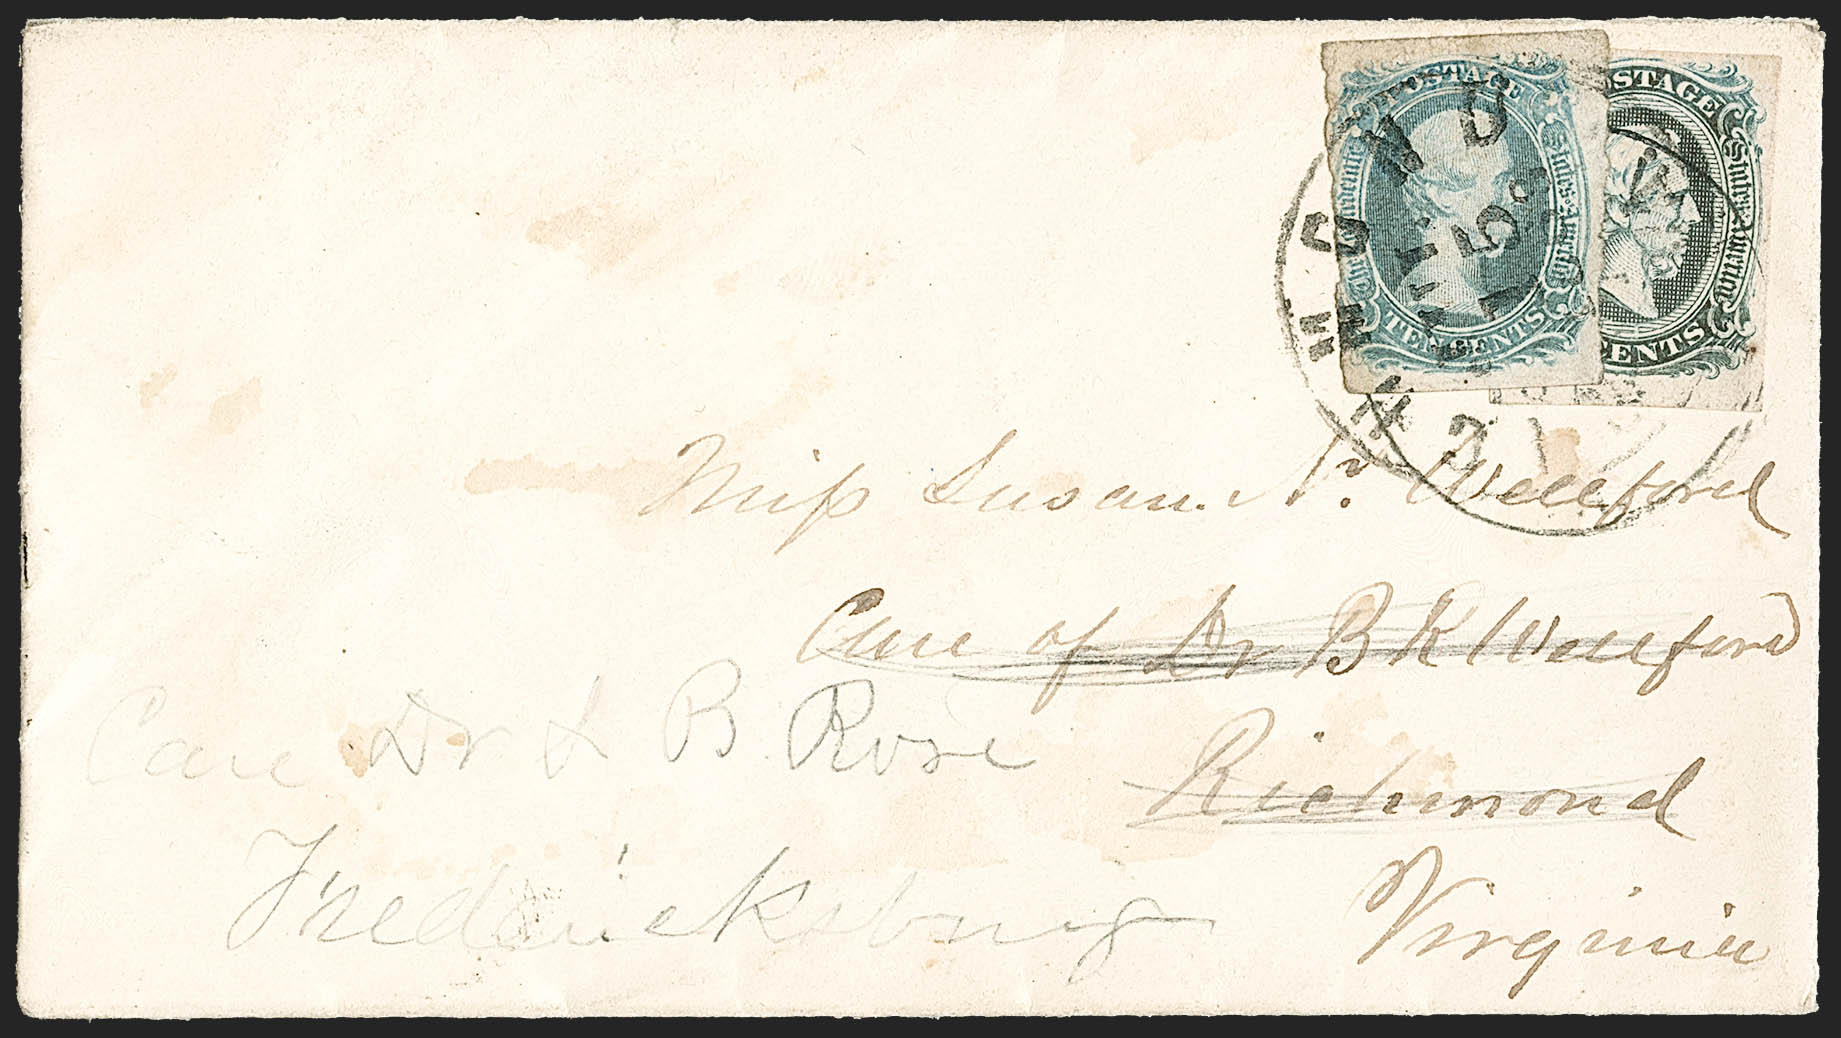 POSTAGE
The Confederate States of America
TEN CENTS
OSTAGE
States of America
CENTS
RICHMOND
Miss Susan N. Wellford
Care of Dr B R Wellford
Care Dr L B Rose
Richmond
Fredericksburg
Virginia